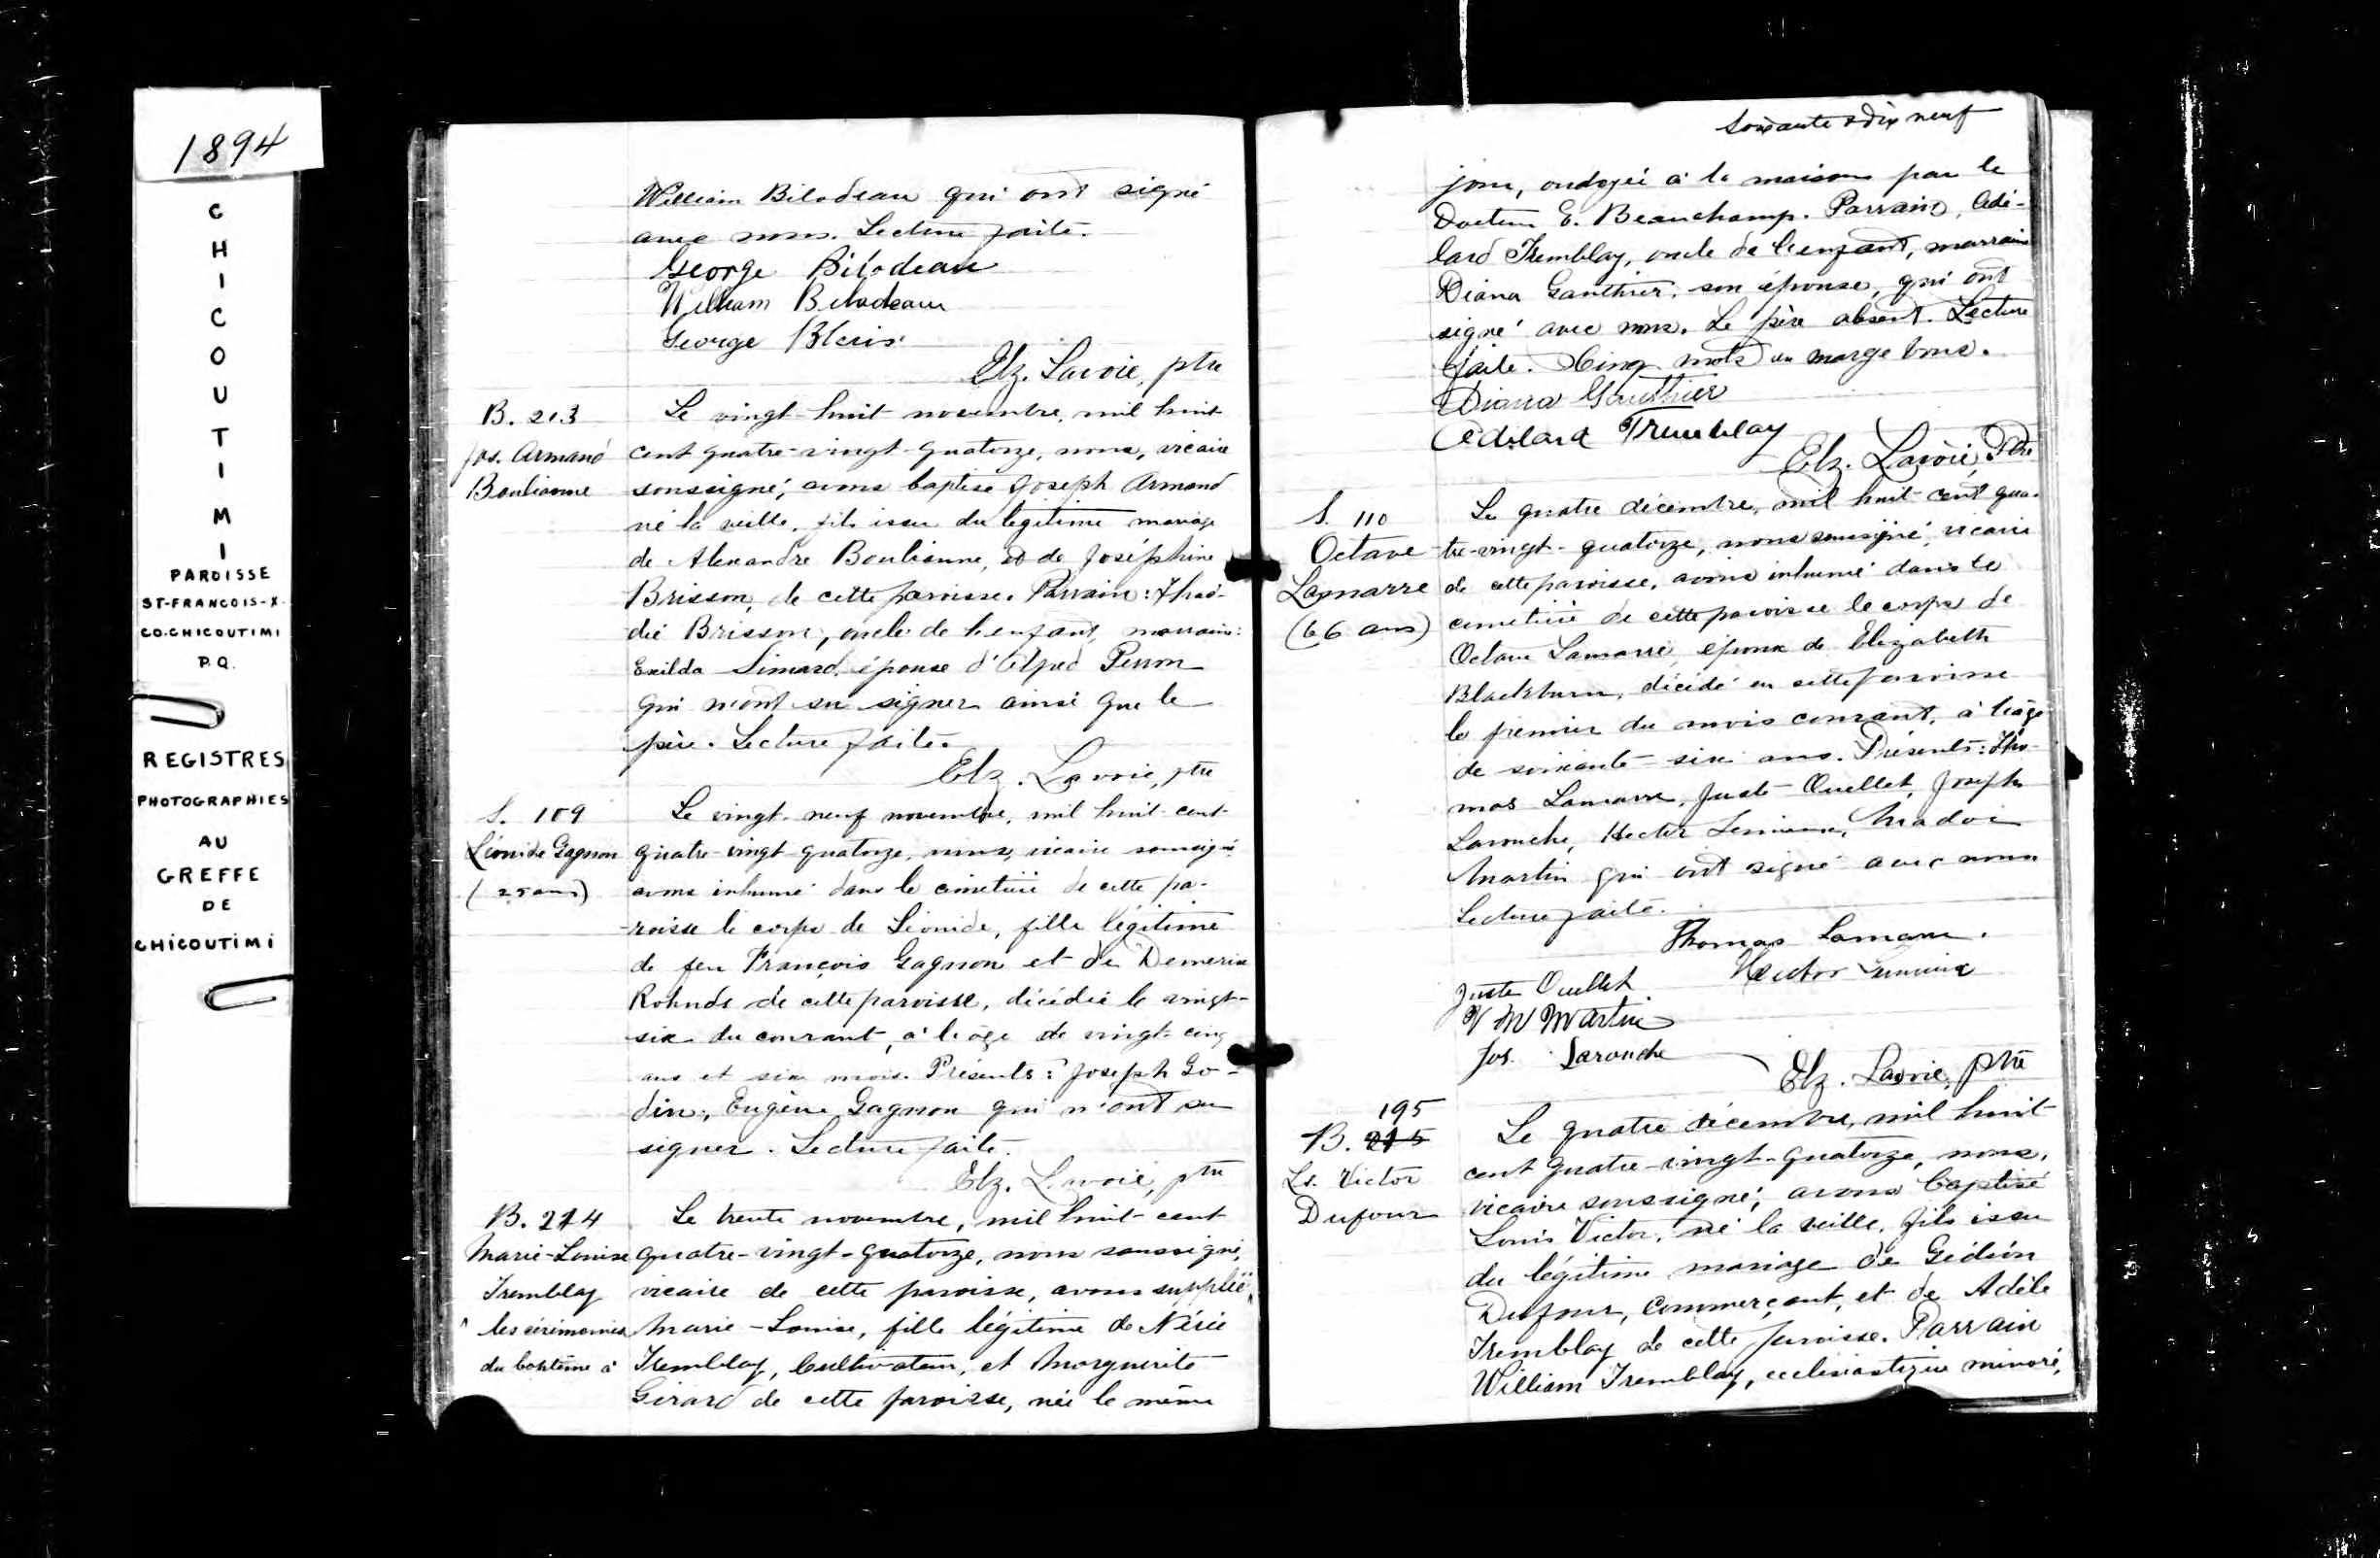 1894
C
H
I
C
O
U
T
I
M
I
PAROISSE
ST-FRANCOIS-X.
CO.CHICOUTIMI
P.Q.
REGISTRES
PHOTOGRAPHIES
AU
GREFFE
DE
CHICOUTIMI
William Bilodeau qui ont signé
avec nous. Lecture faite.
George Bilodeau
William Bilodeau
George
Elz. Lavoie, ptre
B. 213
Jos. Armand
Boulianne
Le vingt-huit novembre, mil huit
cent quatre-vingt-quatorze, nous, vicaire
soussigné, avons baptisé Joseph Armand
né la veille, fils issu du légitime mariage
de Alexandre Boulianne, et de Joséphine
Brisson, de cette paroisse. Parrain: Thad-
dé Brisson, oncle de l'enfant, marraine:
Exilda Simard, épouse d'Alfred Perron
qui n'ont su signer ainsi que le
père. Lecture faite.
Elz. Lavoie, ptre
S. 109
Léonide Gagnon
(25 ans)
Le vingt-neuf novembre, mil huit-cent
quatre-vingt-quatorze, nous, vicaire soussigné
avons inhumé dans le cimetière de cette pa-
roisse le corps de Léonide, fille légitime
de feu François Gagnon et de Demerise
de cette paroisse, décédée le vingt-
six du courant, à l'âge de vingt-cinq
ans et six mois. Présents: Joseph Go-
din, Eugène Gagnon qui n'ont su
signer. Lecture faite.
Elz. Lavoie, ptre
B. 214
Marie-Louise
Tremblay
les cérémonies
du baptême à
Le trente novembre, mil huit-cent
quatre-vingt-quatorze, nous soussigné,
vicaire de cette paroisse, avons suppléé
Marie-Louise, fille légitime de Nérée
Tremblay, cultivateur, et Marguerite
Girard de cette paroisse, née le même
Soixante & dix neuf
jour, ondoyée à la maison par le
Docteur E. Beauchamp. Parrain, Adé-
lard Tremblay, oncle de l'enfant, marraine
Diana Gauthier, son épouse, qui ont
signé avec nous. Le père absent. Lecture
faite. Cinq mots en marge bons.
Diana Gauthier
Adélard Tremblay
Elz. Lavoie, Ptre
S. 110
Octave
Lamarre
(66 ans)
Le quatre décembre, mil huit-cent qua-
tre-vingt-quatorze, nous soussigné, vicaire
de cette paroisse, avons inhumé dans le
cimetière de cette paroisse le corps de
Octave Lamarre, époux de Elizabeth
Blackburn, décédé en cette paroisse
le premier du mois courant, à l'âge
de soixante-six ans. Présents: Tho-
mas Lamarre, Juste Ouellet, Joseph
Larouche, Hector Lemieux,
Martin qui ont signé avec nous
Lecture faite.
Thomas Lamarre.
Juste Ouellet
Hector Lemieux
Martin
Jos. Larouche
Elz. Lavoie, ptre
195
B. 215
Ls. Victor
Dufour
Le quatre décembre, mil huit
cent quatre-vingt-quatorze, nous,
vicaire soussigné, avons baptisé
Louis Victor, né la veille, fils issu
du légitime mariage de Gédéon
Dufour, commerçant, et de Adèle
Tremblay de cette paroisse. Parrain
William Tremblay, ecclésiastique minoré,